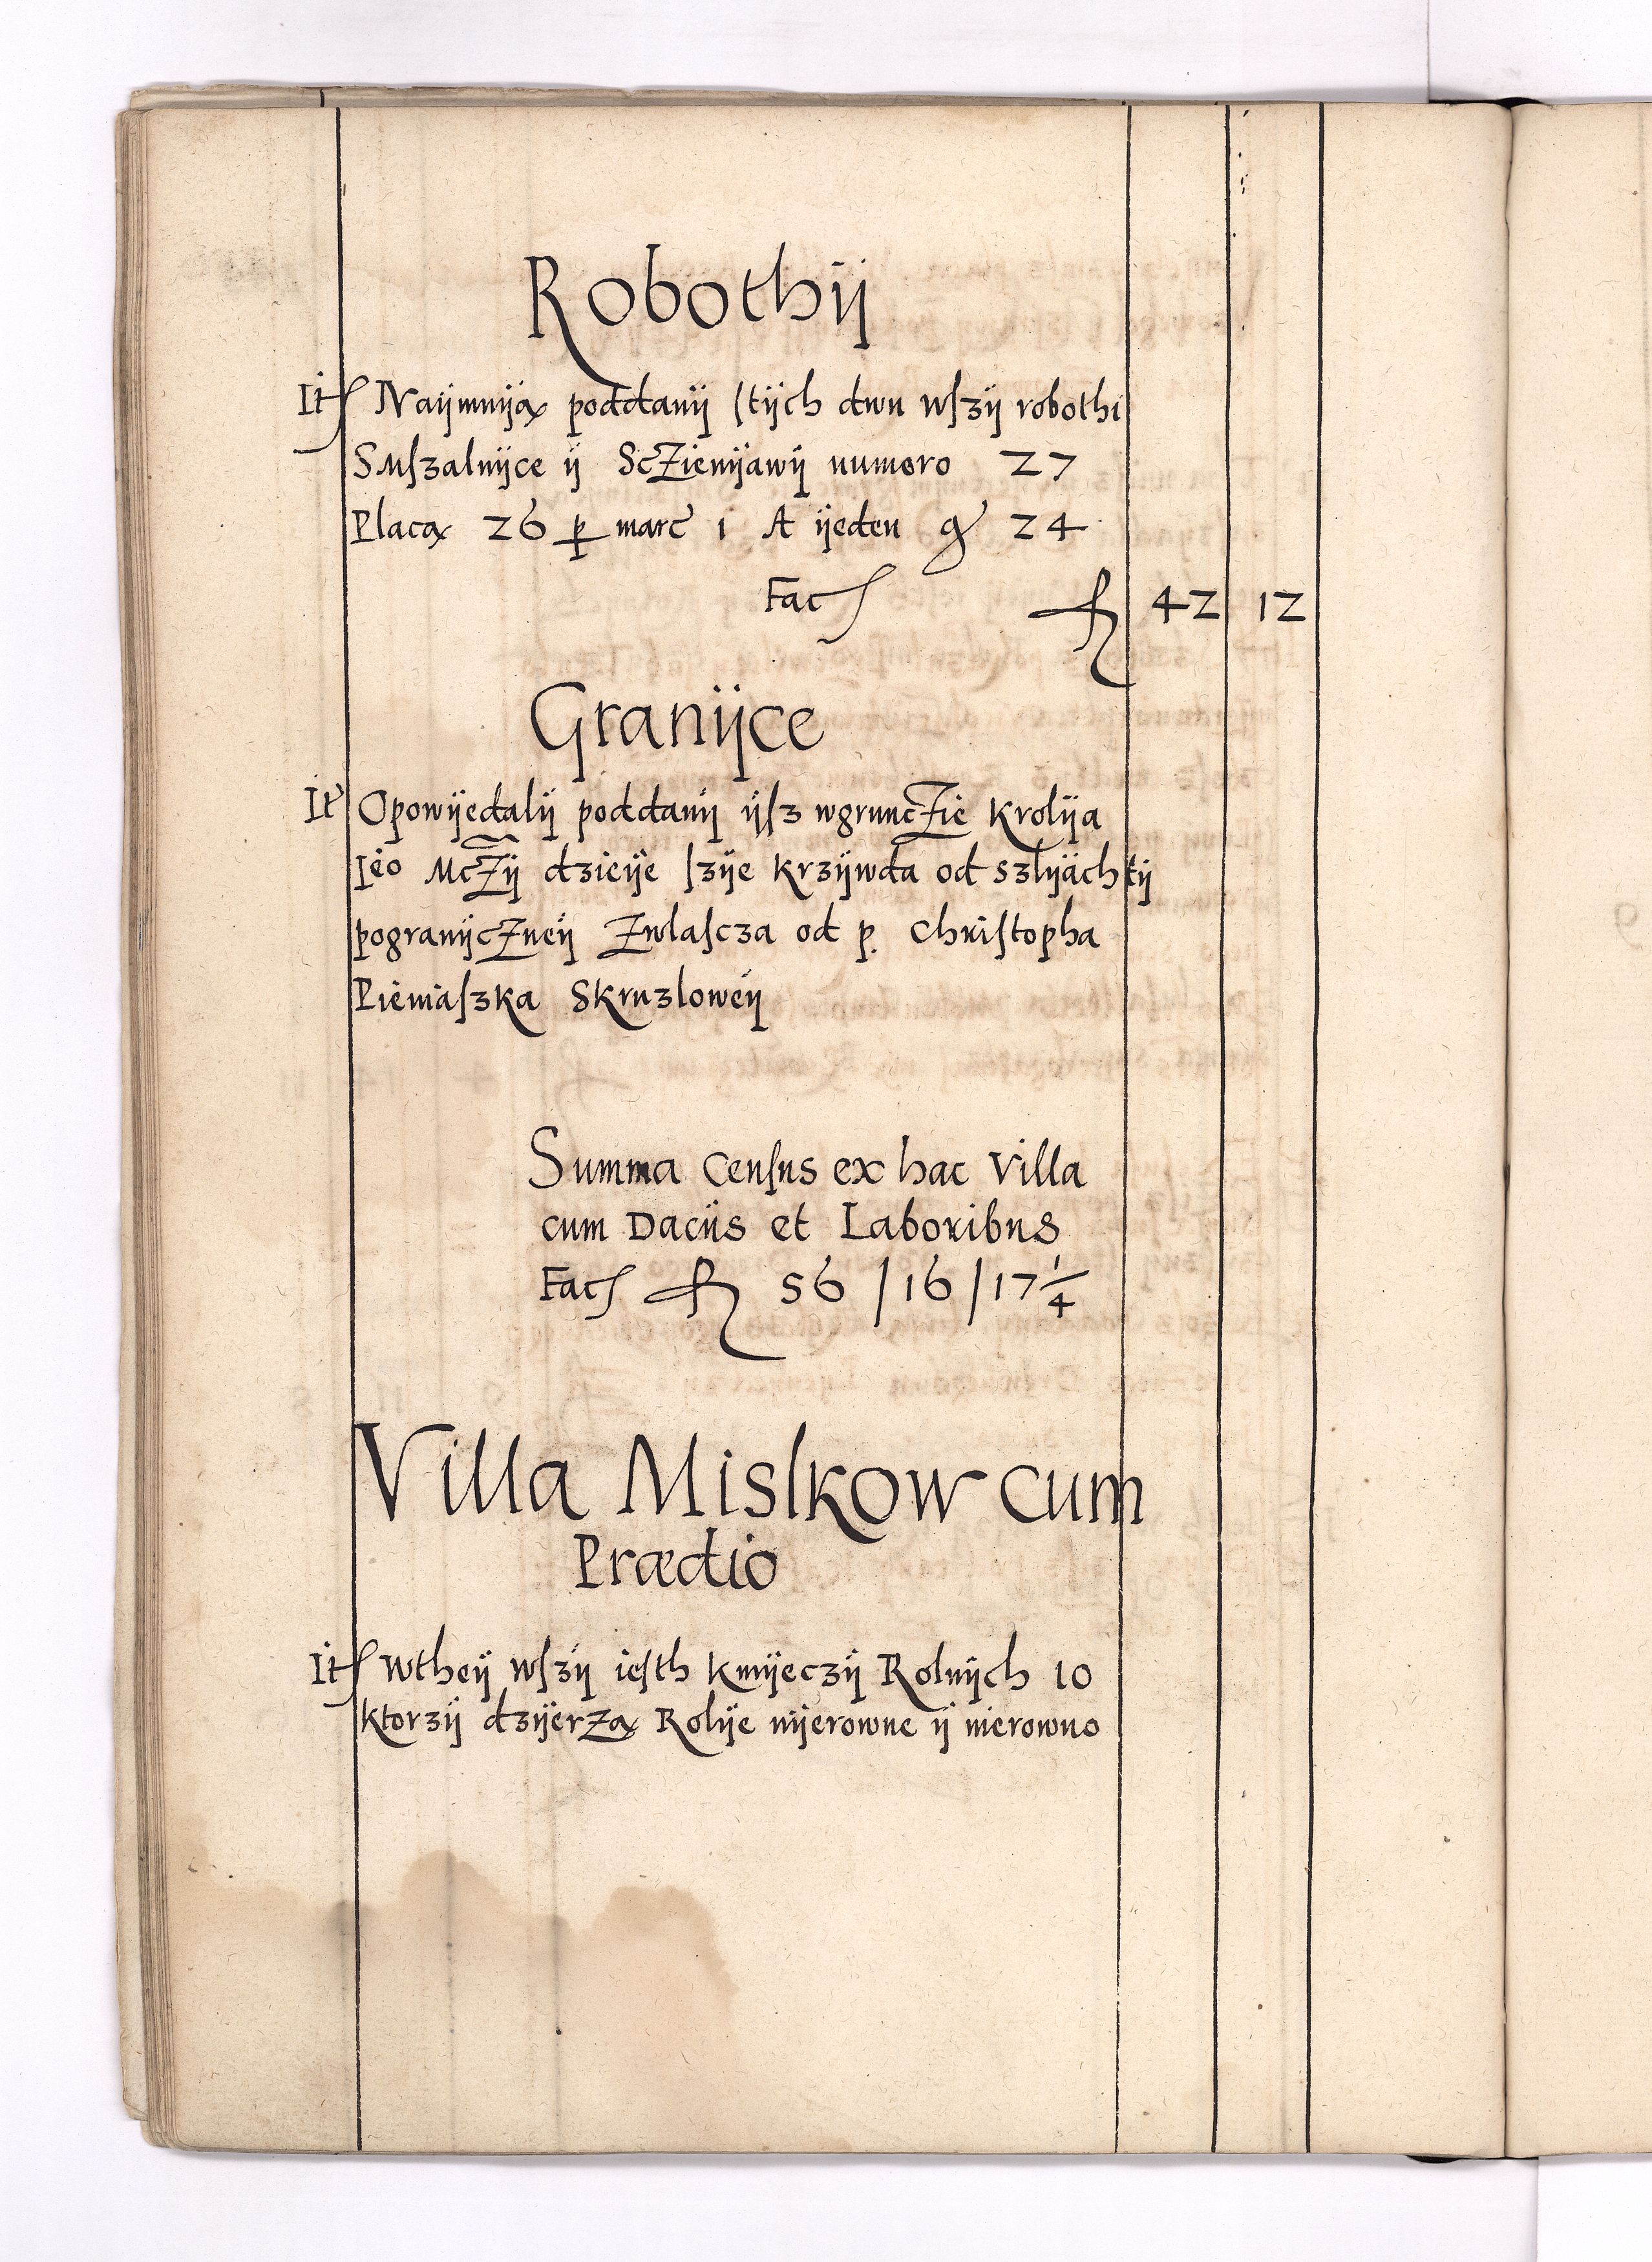 Robothÿ
It Naÿmuÿą poddanÿ (tÿch dwu wſzÿ robothi
Suſzalnÿce ÿ ScZienÿawÿ numero 27
Placą 26 p marc 1 A ÿeden gr 24
Fac fl 42 12
Granÿce
It Opowÿedalÿ poddanÿ ÿſz wgruncZie Krolÿa
Ieo McZÿ dzieÿe ſzÿe krzÿwda od szlÿachtÿ
pogranÿcZneÿ Zwlaſcza od p. Chriſtopha
Pieniaſzka Skruzloweÿ
Summa Cenſus ex hac Villa
cum Dacÿs et Laboribus
Fac fl 56 / 16 / 17 1/4
Villa Mislkow cum
Prædio
It Wtheÿ wſzÿ ieſth Kmÿeczÿ Rolnÿch 10
ktorzÿ dzÿerZą Rolÿe nÿerowne ÿ nierowno